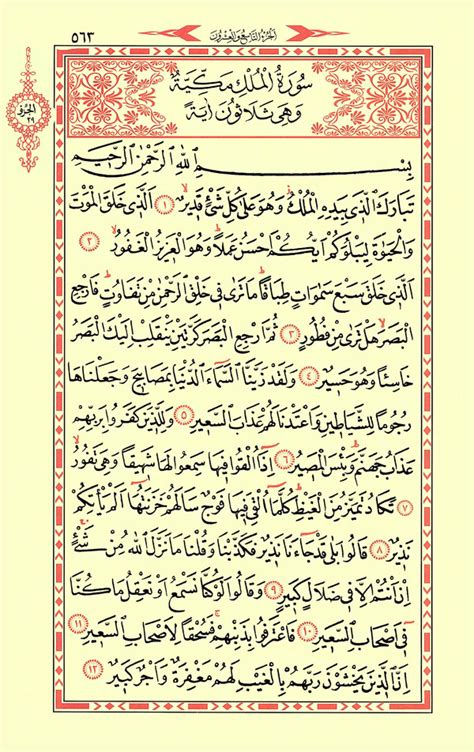 اَلْجُزْءُ التَّاسِعُ وَالْعِشْرُونَ
٥٦٣
سُورَةُ الْمُلْكِ مَكِّيَّةٌ
وَهِيَ ثَلَاثُونَ اٰيَةً
اَلْجُزْءُ
٢٩
بِسْمِ اللّٰهِ الرَّحْمٰنِ الرَّحِيمِ
تَبَارَكَ الَّذ۪ي بِيَدِهِ الْمُلْكُ وَهُوَ عَلٰى كُلِّ شَيْءٍ قَد۪يرٌ ١ اَلَّذ۪ي خَلَقَ الْمَوْتَ
وَالْحَيٰوةَ لِيَبْلُوَكُمْ اَيُّكُمْ اَحْسَنُ عَمَلًا وَهُوَ الْعَز۪يزُ الْغَفُورُ ٢
اَلَّذ۪ي خَلَقَ سَبْعَ سَمٰوَاتٍ طِبَاقًا مَا تَرٰى ف۪ي خَلْقِ الرَّحْمٰنِ مِنْ تَفَاوُتٍ فَارْجِعِ
الْبَصَرَ هَلْ تَرٰى مِنْ فُطُورٍ ٣ ثُمَّ ارْجِعِ الْبَصَرَ كَرَّتَيْنِ يَنْقَلِبْ اِلَيْكَ الْبَصَرُ
خَاسِئًا وَهُوَ حَس۪يرٌ ٤ وَلَقَدْ زَيَّنَّا السَّمَاءَ الدُّنْيَا بِمَصَاب۪يحَ وَجَعَلْنَاهَا
رُجُومًا لِلشَّيَاط۪ينِ وَاَعْتَدْنَا لَهُمْ عَذَابَ السَّع۪يرِ ٥ وَلِلَّذ۪ينَ كَفَرُوا بِرَبِّهِمْ
عَذَابُ جَهَنَّمَ وَبِئْسَ الْمَص۪يرُ ٦ اِذَا اُلْقُوا ف۪يهَا سَمِعُوا لَهَا شَه۪يقًا وَهِيَ تَفُورُ
٧ تَكَادُ تَمَيَّزُ مِنَ الْغَيْظِ كُلَّمَا اُلْقِيَ ف۪يهَا فَوْجٌ سَاَلَهُمْ خَزَنَتُهَا اَلَمْ يَأْتِكُمْ
نَذ۪يرٌ ٨ قَالُوا بَلٰى قَدْ جَاءَنَا نَذ۪يرٌ فَكَذَّبْنَا وَقُلْنَا مَا نَزَّلَ اللّٰهُ مِنْ شَيْءٍ
اِنْ اَنْتُمْ اِلَّا ف۪ي ضَلَالٍ كَب۪يرٍ ٩ وَقَالُوا لَوْ كُنَّا نَسْمَعُ اَوْ نَعْقِلُ مَا كُنَّا
ف۪ي اَصْحَابِ السَّع۪يرِ ١٠ فَاعْتَرَفُوا بِذَنْبِهِمْ فَسُحْقًا لِاَصْحَابِ السَّع۪يرِ ١١
اِنَّ الَّذ۪ينَ يَخْشَوْنَ رَبَّهُمْ بِالْغَيْبِ لَهُمْ مَغْفِرَةٌ وَاَجْرٌ كَب۪يرٌ ١٢